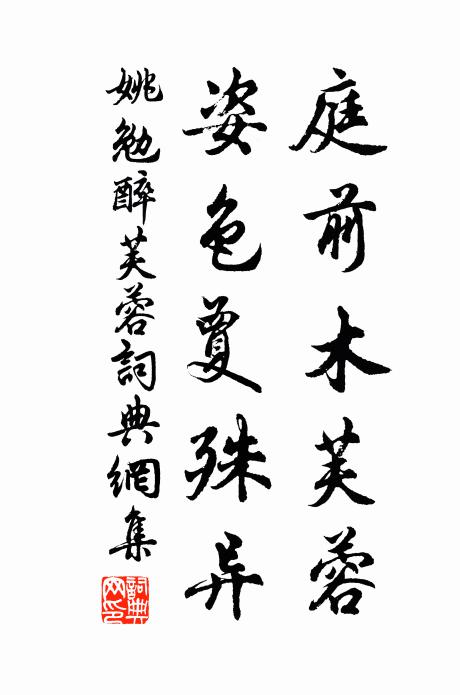 庭前木芙蓉
姿色夐殊异
姚勉醉芙蓉詞典網集
詞典
网印